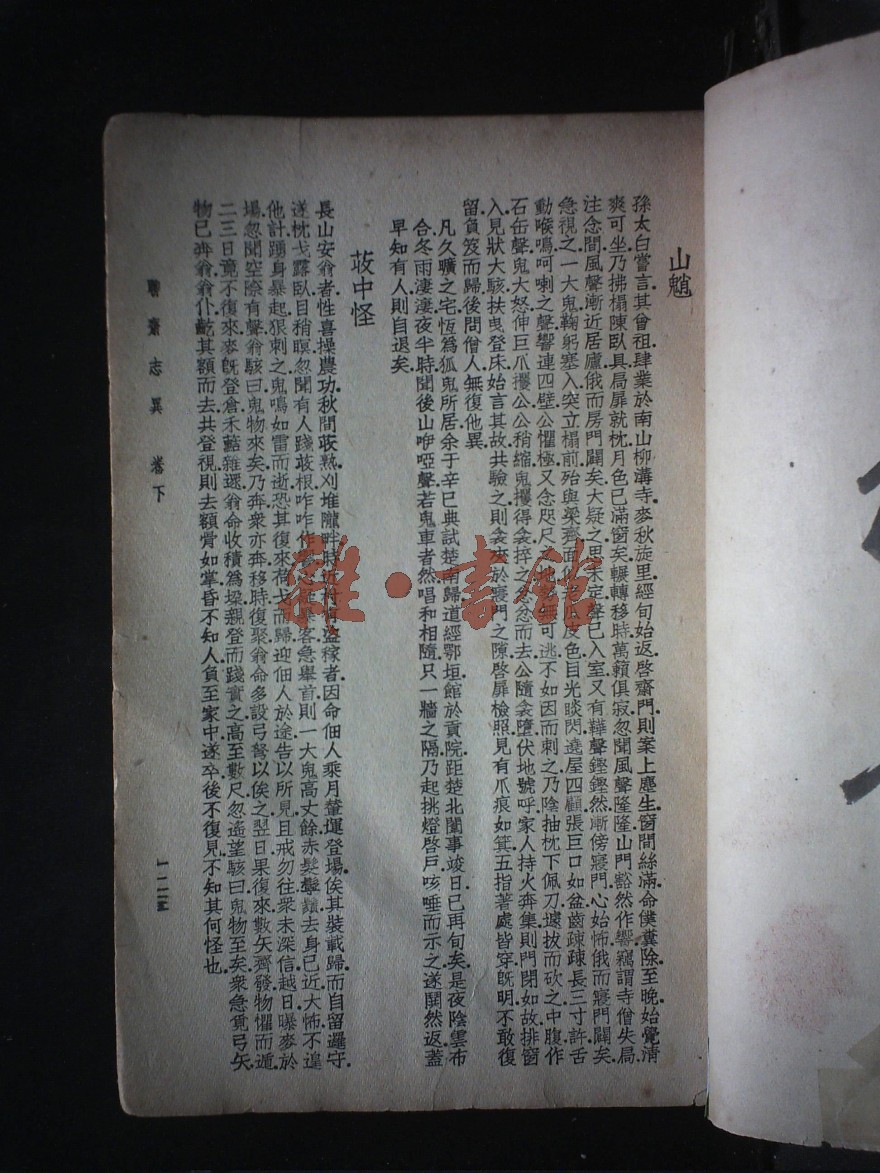 山魈
孫太白嘗言其曾祖肆業於南山柳溝寺麥秋旋里經旬始返啓齋門則案上塵生窗間絲滿命僕糞除至晚始覺清
爽可坐乃拂榻陳臥具扃扉就枕月色已滿窗矣輾轉移時萬籟俱寂忽聞風聲隆隆山門豁然作響竊謂寺僧失扃
注念間風聲漸近居廬俄而房門闢矣大疑之思未定聲已入室又有鞾聲鏗鏗然漸傍寢門心始怖俄而寢門闢矣
急視之一大鬼鞠躬塞入突立榻前殆與梁齊面似老瓜皮色目光睒閃遶屋四顧張巨口如盆齒疎疎長三寸許舌
動喉鳴呵喇之聲響連四壁公懼極又念咫尺之地勢無可逃不如因而刺之乃陰抽枕下佩刀遽拔而砍之中腹作
石缶聲鬼大怒伸巨爪攫公公稍縮鬼攫得衾捽之忿忿而去公隨衾墮伏地號呼家人持火奔集則門閉如故排窗
入見狀大駭扶曳登床始言其故共驗之則衾夾於寢門之隙啓扉檢照見有爪痕如箕五指著處皆穿旣明不敢復
留負笈而歸後問僧人無復他異
凡久曠之宅恆爲狐鬼所居余于辛巳典試楚南歸道經鄂垣館於貢院距楚北闈事竣日已再旬矣是夜陰雲布
合冬雨淒淒夜半時聞後山咿啞聲若鬼車者然唱和相隨只一牆之隔乃起挑燈啓戶咳唾而示之遂鬨然返蓋
早知有人則自退矣
荍中怪
長山安翁者性喜操農功秋間荍熟刈堆隴畔時近村有盜稼者因命佃人乘月輦運登場俟其裝載歸而自留邏守
遂枕戈露臥目稍瞑忽聞有人踐荍根咋咋作響心疑暴客急舉首則一大鬼高丈餘赤髮鬡鬚去身已近大怖不遑
他計踴身暴起狠刺之鬼鳴如雷而逝恐其復來荷戈而歸迎佃人於途告以所見且戒勿往衆未深信越日曝麥於
場忽聞空際有聲翁駭曰鬼物來矣乃奔衆亦奔移時復聚翁命多設弓弩以俟之翌日果復來數矢齊發物懼而遁
二三日竟不復來麥旣登倉禾䕸雜遝翁命收積爲垛親登而踐實之高至數尺忽遙望駭曰鬼物至矣衆急覓弓矢
物已奔翁翁仆齕其額而去共登視則去額骨如掌昏不知人負至家中遂卒後不復見不知其何怪也
聊齋志異 卷下
雜·書館